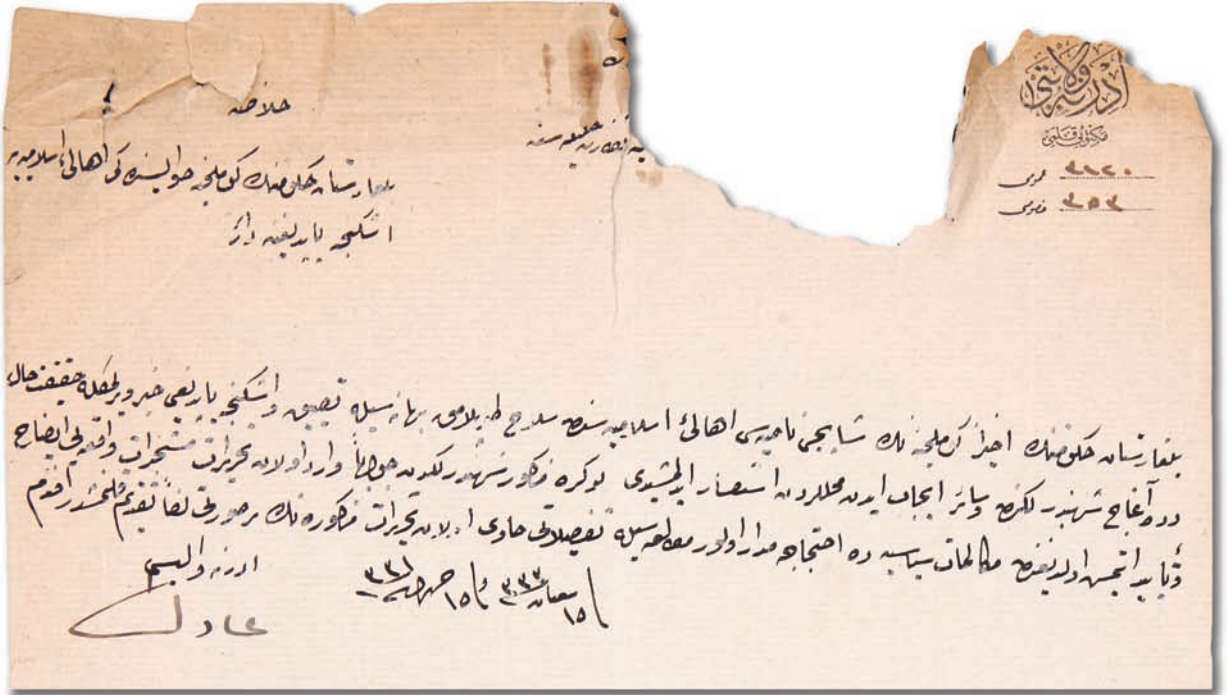 ادرنه ولايتى
مكتوبى قلمى
عمومى ٣١٢٠
خصوصى ٣٥٣
نظارت جليله سنه
خلاصه
بلغارستان حكومتنك كوملجنه حواليسنده كى اهالئ اسلاميه يه
اشكنجه ياپديغنه دائر
بلغارستان حكومتنك اخيراً كوملجنه نك شاپجى ناحيه سى اهالئ اسلاميه سنه سلاح طوپلامق بهانه سيله تضييق و اشكنجه ياپديغى خبر ويرلمكله حقيقت حال
دده آغاج شهبندرلكنه و سائر ايجاب ايدن محللردن استفسار ايدلمشيدى بو كره مذكور شهبندرلكدن جواباً وارد اولان تحريرات مستخبرات واقعه يى ايضاح
و تأييد ايتمش اولديغندن مكالمات سياسيه ده احتجاجه مدار اولور مطالعه سيله تفصيلاتى حاوى اولان تحريرات مذكوره نك بر صورتى لفاً تقديم قلنمشدر افندم
فى ١٥ شعبان ٣٣٣ و فى ١٥ حزيران ٣٣١
ادرنه واليسى
عادل